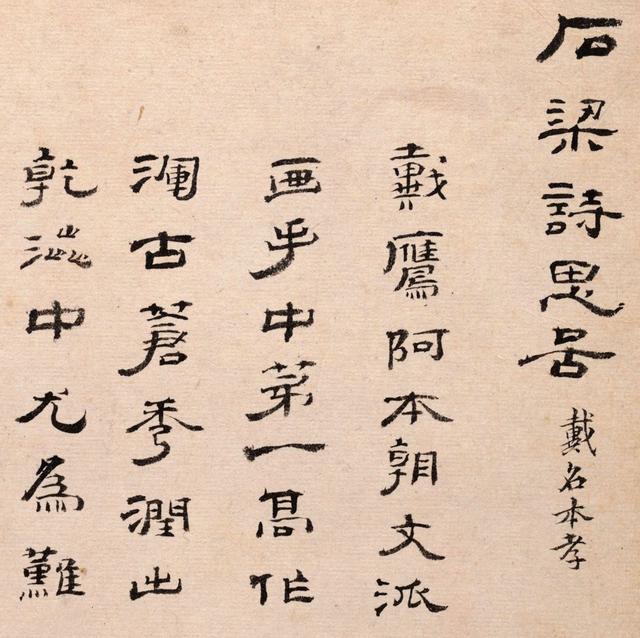 石梁詩思
戴名本孝
戴鷹阿本朝文派
画手中苐一髙作
渾古蒼秀潤出
乾澁中尤為難